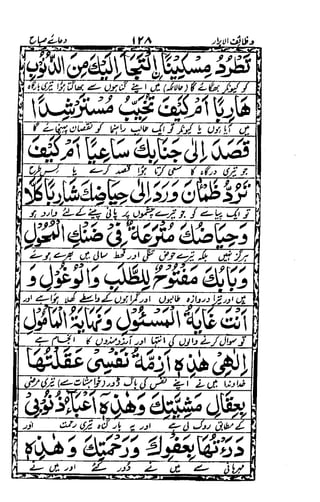 وظائف الابرار ۱۲۸ دعائے صباح
تَطْرُدُ مِسْكِيْنًا الْتَجَأَ اِلَيْكَ مِنَ الذُّنُوْبِ
کو کیونکر بھگائے گا (حالانکہ) میں اپنے گناہوں سے بھاگتا ہوا تیری بارگاہ
هَارِبًا اَمْ كَيْفَ تُخَيِّبُ مُسْتَرْشِدًا
میں آیا ہوں یا کیونکر تو ایک طالب راہنما کو نقصان پہنچائے گا
قَصَدَ اِلٰى جَنَابِكَ سَاعِيًا اَمْ كَيْفَ
جو تیری درگاہ کا سعی کرتا ہوا قصد کرے یا کس طرح
تَرُدُّ ظَمْاٰنَ وَرَدَ اِلٰى حِيَاضِكَ شَارِبًا كَلَّا
تو ایک پیاسے کو جو تیرے چشموں پر پانی پینے کے لئے وارد ہو
وَحِيَاضُكَ مُتْرَعَةٌ فِيْ ضَنْكِ الْمُحُوْلِ
ہرگز نہیں بلکہ تیرے حوض تنگی اور قحط سالی میں بھرے ہوئے
وَبَابُكَ مَفْتُوْحٌ لِلطَّلَبِ وَالْوُغُوْلِ وَ
ہیں اور تیرا دروازہ طالبوں اور گمراہوں کے واسطے کھلا ہوا ہے اور
اَنْتَ غَايَةُ الْمَسْئُوْلِ وَنِهَايَةُ الْمَأْمُوْلِ
تو سوال کرنے والوں کی انتہا اور آرزومندوں کا انجام ہے
اِلٰهِيْ هٰذِهٖ اَزِمَّةُ نَفْسِيْ عَقَلْتُهَا
خداوندا میں نے اپنے نفس کی باگ ڈور (خواہشات سے) تیری مرضی
بِعِقَالِ مَشِيَّتِكَ وَهٰذِهٖ اَعْبَاءُ ذُنُوْبِيْ
کے مطابق روک لی ہے اور یہ بار گناہ تیری رحمت اور
دَرَئْتُهَا بِعَفْوِكَ وَرَحْمَتِكَ وَهٰذِهٖ
مہربانی سے میں نے دور کئے اور میں نے